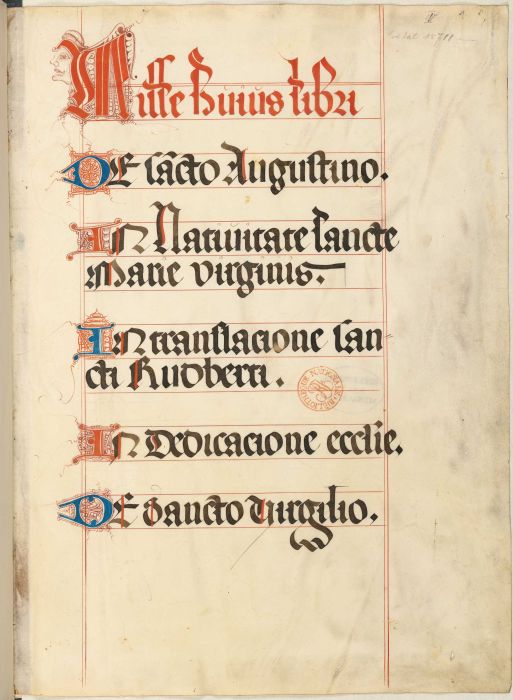 Misse huius libri
DE sācto Augustino.
IN Natiuitate sancte
Marie virginis.
IN translacione san-
cti Rudberti.
IN Dedicacione ecclie.
DE Sancto virgilio.